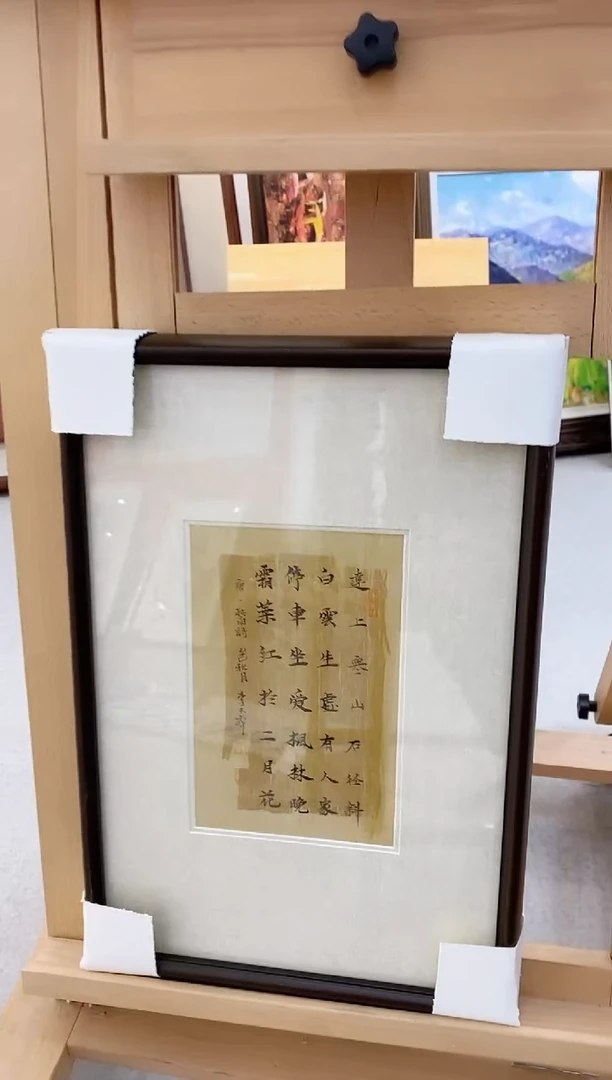 遠上寒山石径斜
白雲生處有人家
停車坐愛楓林晚
霜葉紅於二月花
唐·杜牧詩 秋月 李